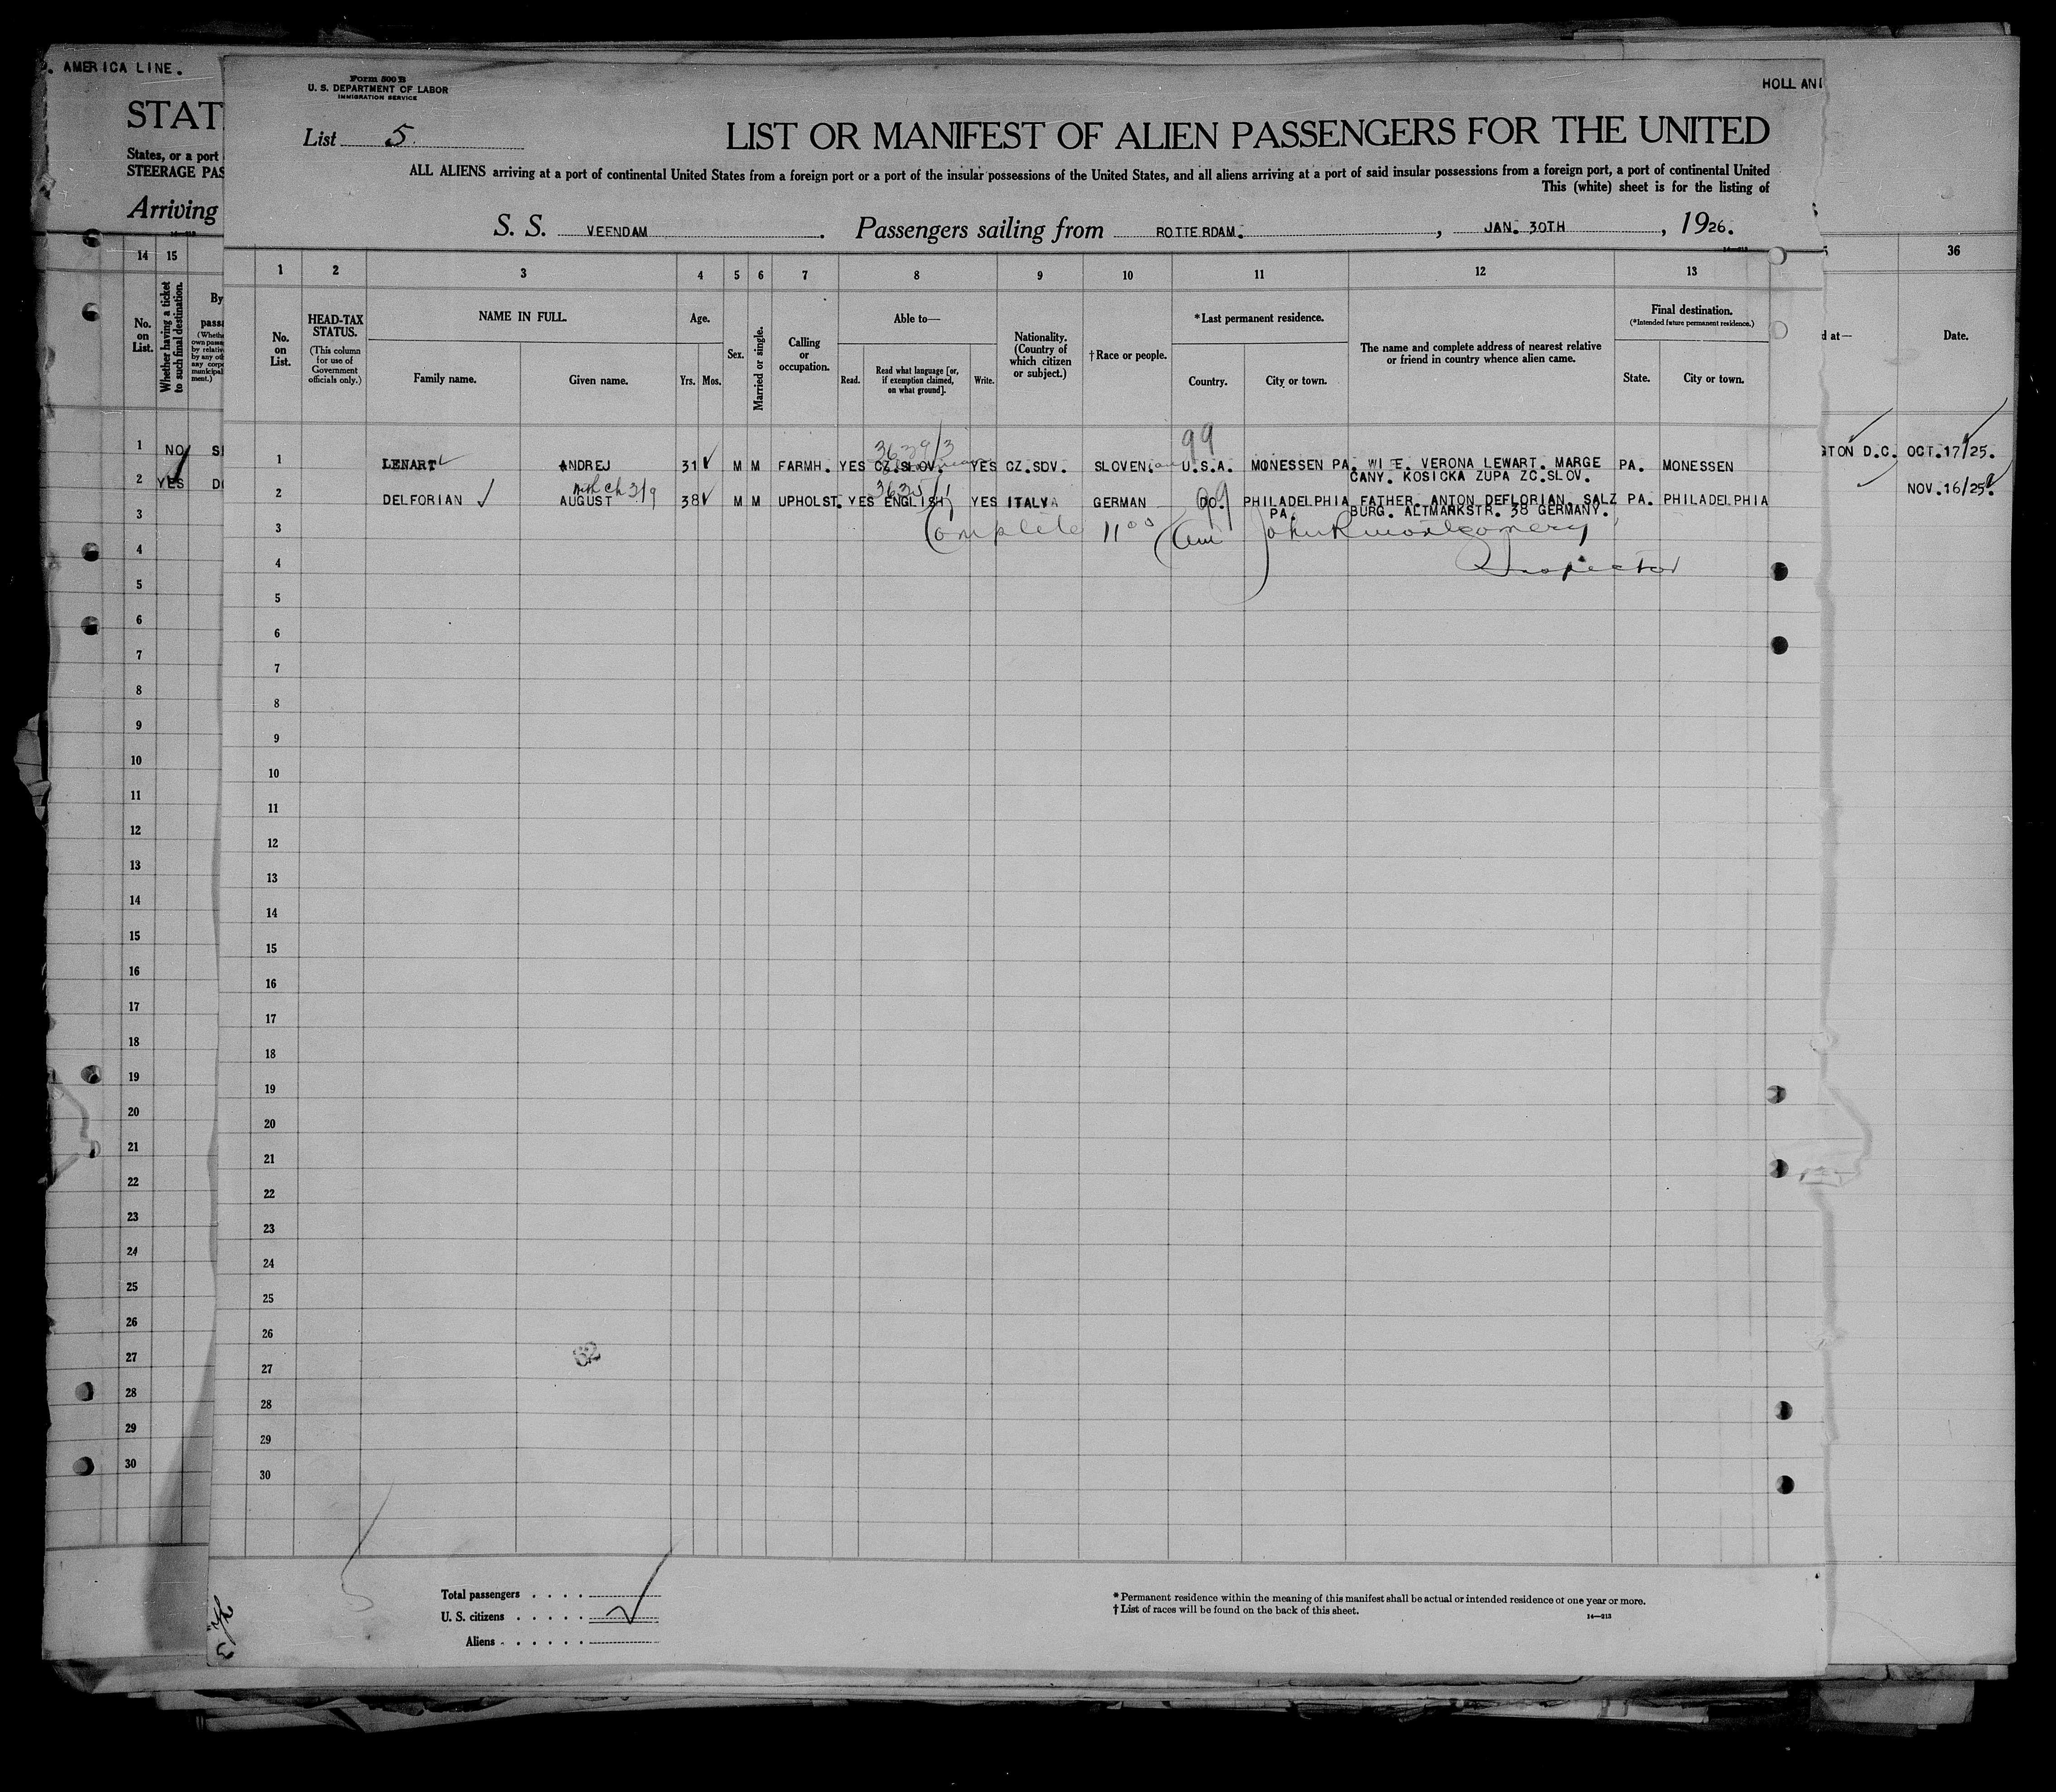 . AMERICA LINE.
STAT
States, or a port
STEERAGE PAS
Arriving
Form 500 B
U. S. DEPARTMENT OF LABOR
IMMIGRATION SERVICE
HOLLAN
List 5.
LIST OR MANIFEST OF ALIEN PASSENGERS FOR THE UNITED
ALL ALIENS arriving at a port of continental United States from a foreign port or a port of the insular possessions of the United States, and all aliens arriving at a port of said insular possessions from a foreign port, a port of continental United
This (white) sheet is for the listing of
S. S. VEENDAM. Passengers sailing from ROTTERDAM. , JAN. 30TH , 1926.
14 15 1 2 3 4 5 6 7 8 9 10 11 12 13 36
No. on List.
Whether having a ticket to such final destination.
No. on List.
HEAD-TAX STATUS.
(This column for use of Government officials only.)
NAME IN FULL.
Family name. Given name.
Age.
Yrs. Mos.
Sex.
Married or single.
Calling or occupation.
Able to—
Read. Read what language [or, if exemption claimed, on what ground]. Write.
Nationality. (Country of which citizen or subject.)
†Race or people.
*Last permanent residence.
Country. City or town.
The name and complete address of nearest relative or friend in country whence alien came.
Final destination.
(*Intended future permanent residence.)
State. City or town.
d at— Date.
99
1 NO 1 LENART ANDREJ 31 M M FARMH. YES CZ.SLOV. YES CZ.SDV. SLOVEN. U.S.A. MONESSEN PA. WI E. VERONA LEWART. MARGE PA. MONESSEN GTON D.C. OCT.17/25.
CANY. KOSICKA ZUPA ZC.SLOV.
2 YES 2 DELFORIAN AUGUST 38 M M UPHOLST. YES ENGLISH YES ITALY GERMAN DO. PHILADELPHIA FATHER. ANTON DEFLORIAN. SALZ PA. PHILADELPHIA NOV.16/25.
PA. BURG. ALTMARKSTR. 38 GERMANY.
3 3 Complete 11⁰⁰ am John R Montgomery
4 4 Inspector
5 5
6 6
7 7
8 8
9 9
10 10
11 11
12 12
13 13
14 14
15 15
16 16
17 17
18 18
19 19
20 20
21 21
22 22
23 23
24 24
25 25
26 26
62
27 27
28 28
29 29
30 30
Total passengers . . . .
U. S. citizens . . . . .
Aliens . . . . . .
*Permanent residence within the meaning of this manifest shall be actual or intended residence of one year or more.
†List of races will be found on the back of this sheet.
14—213